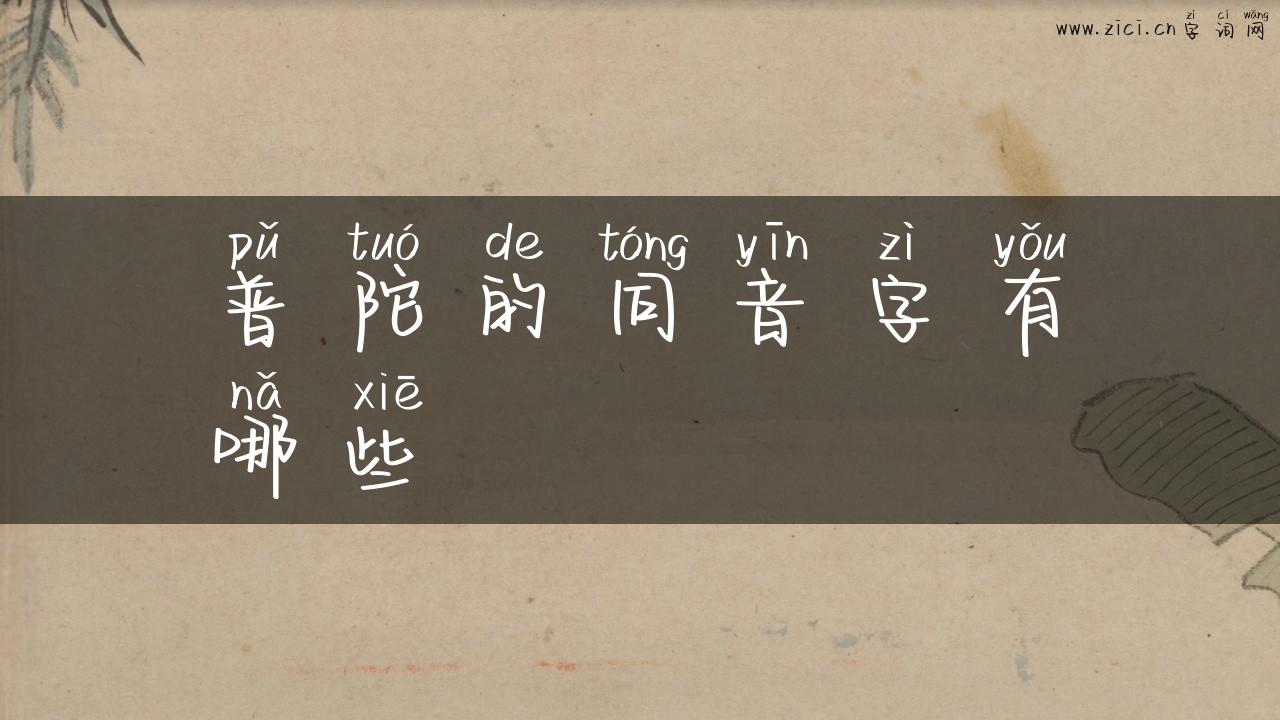 zì cí wǎng
www.zici.cn 字词网
pǔ tuó de tóng yīn zì yǒu
普陀的同音字有
nǎ xiē
哪些